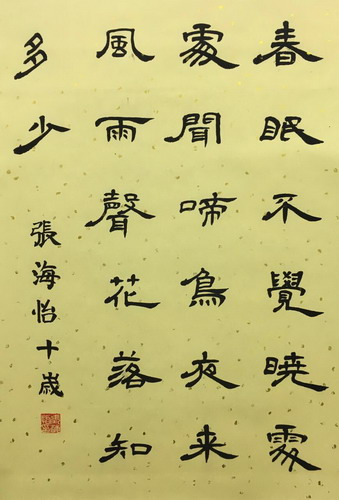 春眠不覺曉處
處聞啼鳥夜来
風雨聲花落知
多少
張海怡十歲